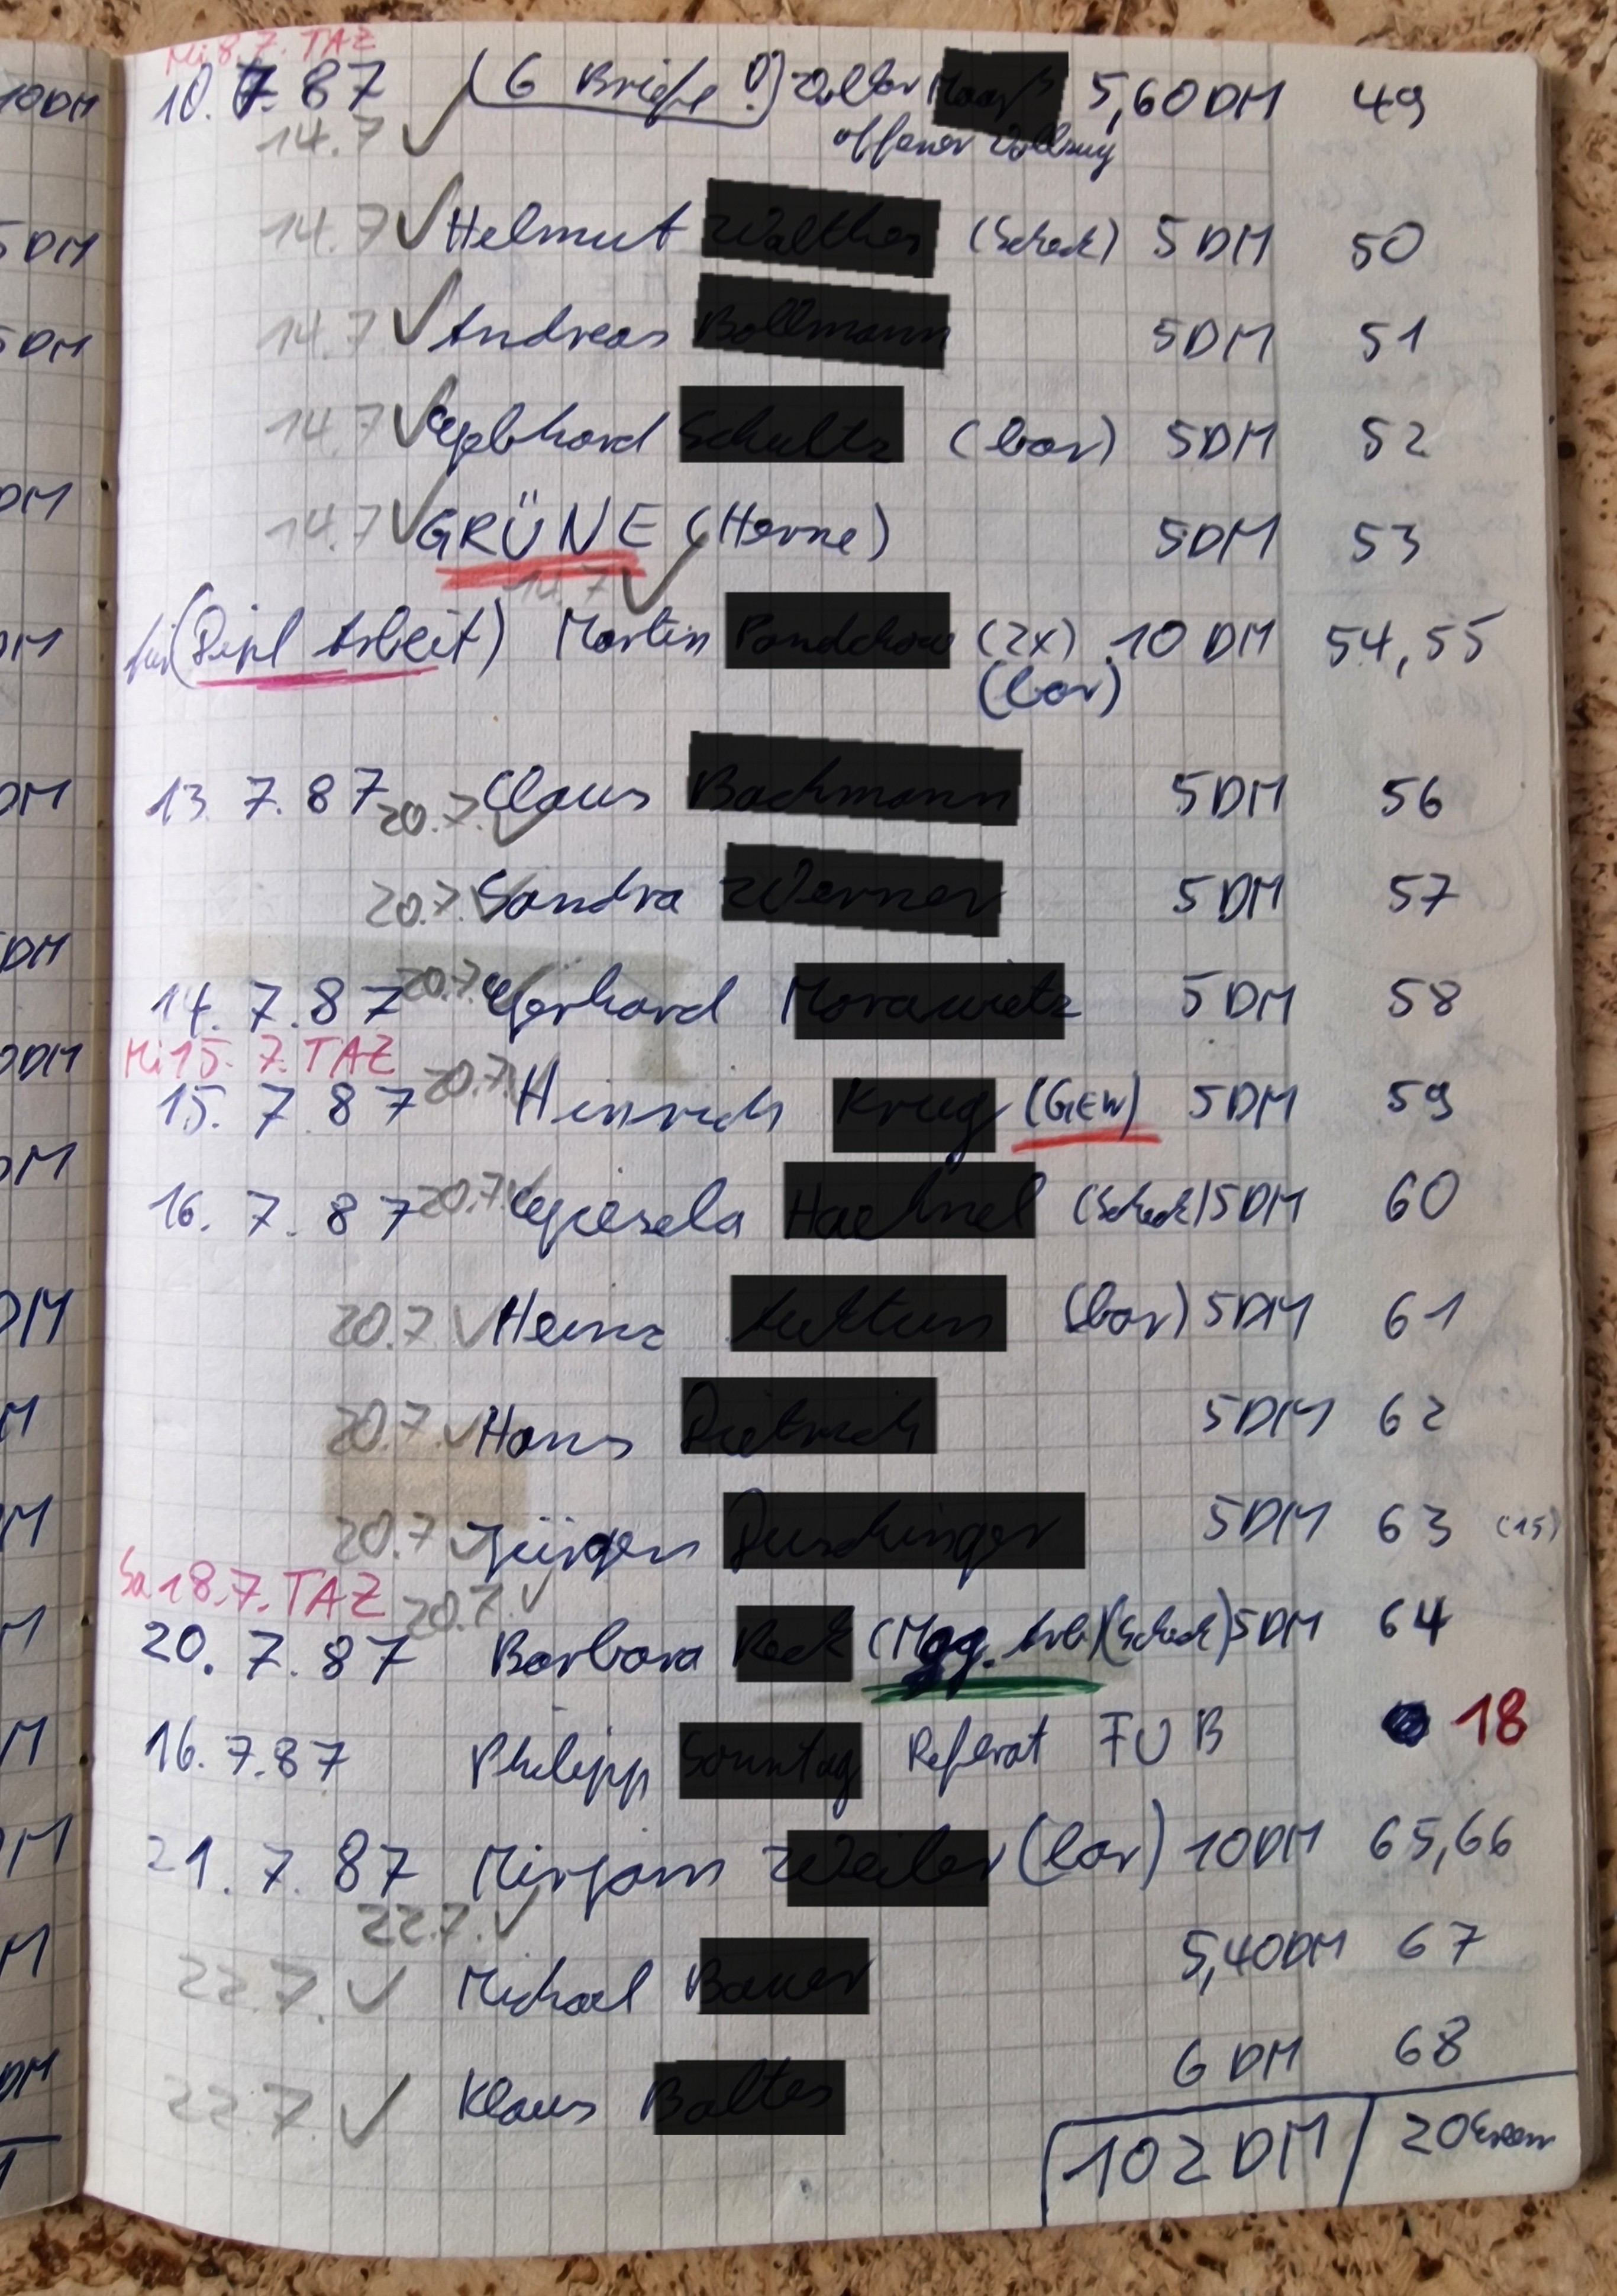 Mi 8.7. TAZ
10. 7. 87 (6 Briefe!) 5,60 DM 49
14.7 ✓ offener Vollzug
14.7 ✓ Helmut (Scheck) 5 DM 50
14.7 ✓ Andreas 5DM 51
14.7 ✓ Gebhard (bar) 5DM 52
14.7 ✓ GRÜNE (Herne) 5DM 53
14.7 ✓
für (Dipl Arbeit) Martin (2x) 10 DM 54,55
(bar)
13. 7. 87 20.7. ✓ Claus 5DM 56
20.7. ✓ Sandra 5DM 57
14. 7. 87 20.7. ✓ Gerhard 5 DM 58
Mi 15. 7. TAZ
15. 7 87 20.7. ✓ Hinrich (GEW) 5DM 59
16. 7. 87 20.7. ✓ Gisela (Scheck) 5DM 60
20.7 ✓ Heinz (bar) 5DM 61
20.7. ✓ Hans 5DM 62
20.7 ✓ Jürgen 5DM 63 (15)
Sa 18.7. TAZ 20.7. ✓
20. 7. 87 Barbara (Scheck) 5DM 64
16. 7.87 Philipp Referat FUB 18
21. 7. 87 Mirjam (bar) 10DM 65,66
22.7. ✓
5,40DM 67
22.7. ✓ Michael
6 DM 68
22.7. ✓ Klaus
102 DM 20 Exem